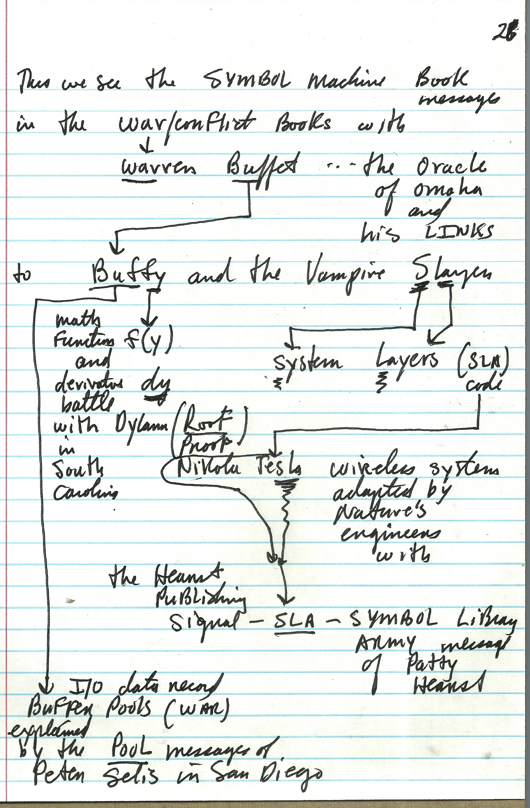 28
Thus we see the SYMBOL Machine Book
messages
in the war/conflict Books with
Warren Buffet ... the Oracle
of Omaha
and
his LINKS
to Buffy and the Vampire Slayers
math
Function f(y)
and
derivative dy
battle
with Dylann (Root
Proof)
in
South
Carolina
System Layers (SLA)
code
Nikola Tesla wireless system
adapted by
Nature's
engineers
with
the Hearst
Publishing
Signal - SLA - SYMBOL Library
ARMY message
of Patty
Hearst
I/O data record
Buffer Pools (WAR)
explained
by the POOL messages of
Peter Selis in San Diego